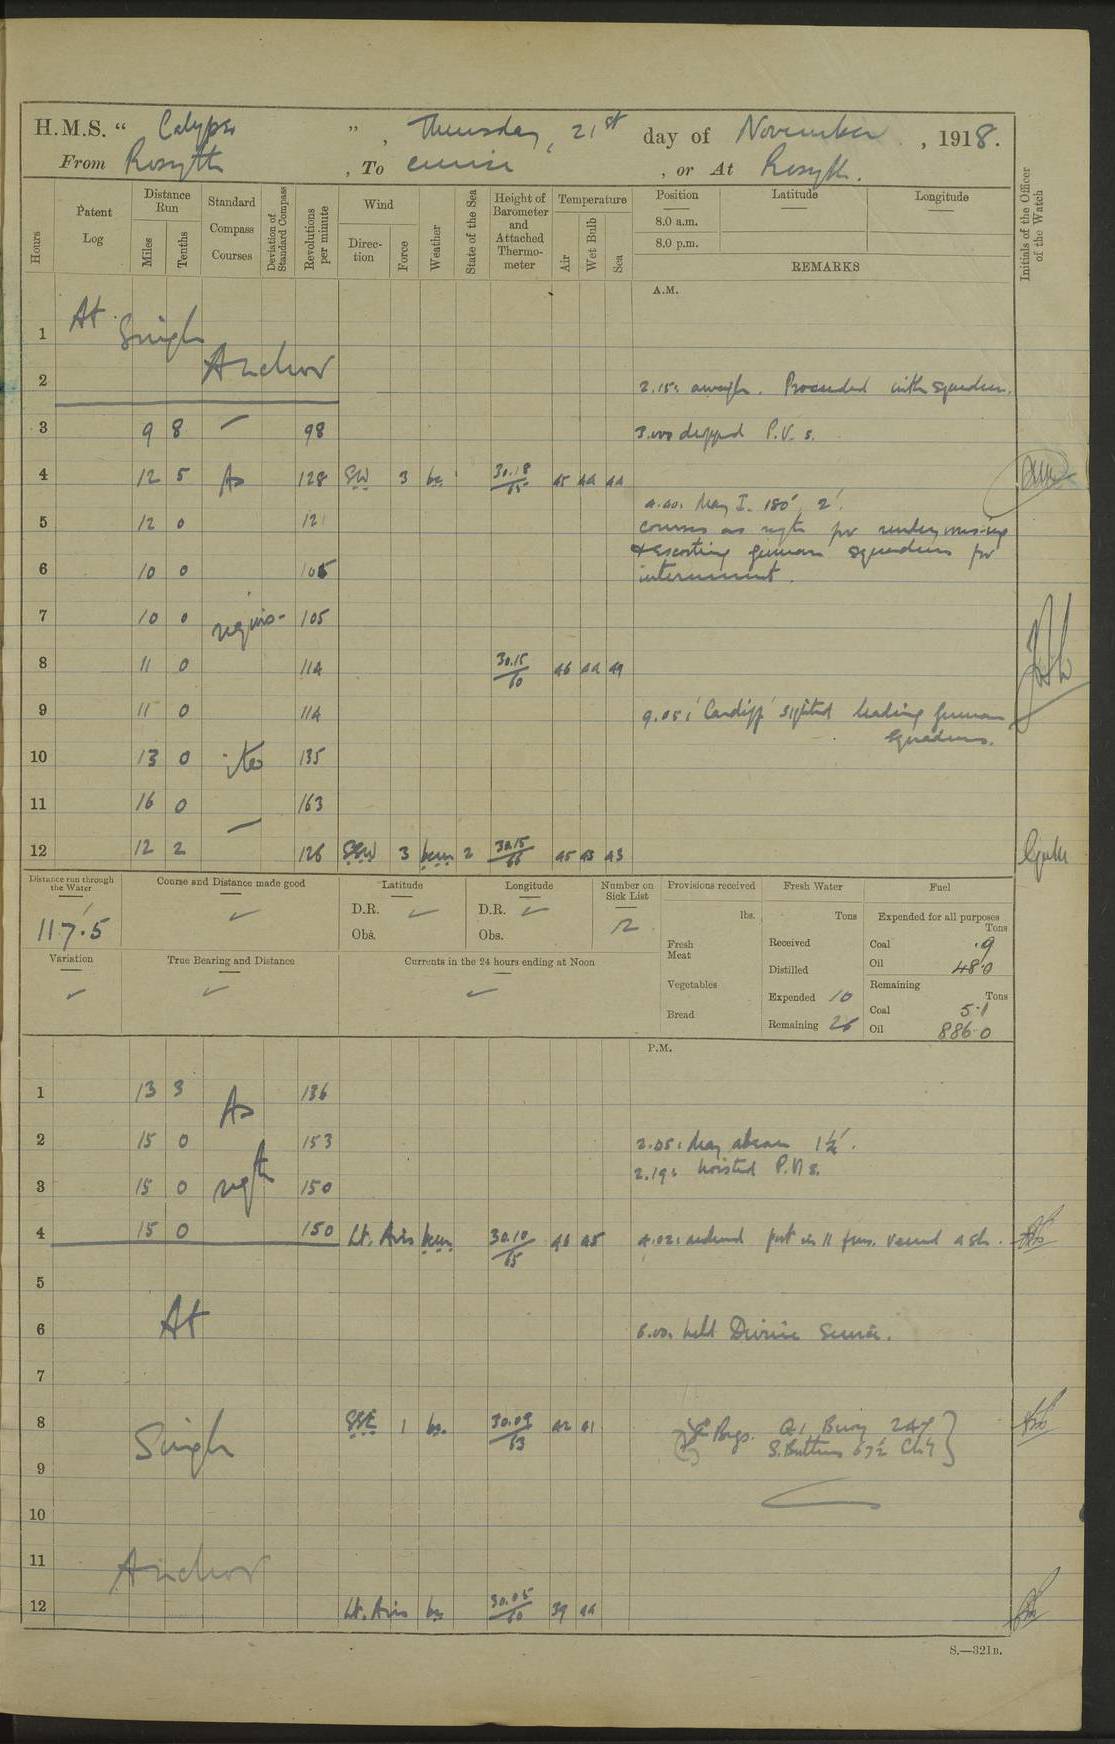 H.M.S. " Calypso ", Thursday, 21st day of November, 1918.
From Rosyth, To cruise, or At Rosyth.
Hours
Patent Log
Distance Run
Miles
Tenths
Standard Compass Courses
Deviation of Standard Compass
Revolutions per minute
Wind
Direction
Force
Weather
State of the Sea
Height of Barometer and Attached Thermometer
Temperature
Air
Wet Bulb
Sea
Position
Latitude
Longitude
8.0 a.m.
8.0 p.m.
REMARKS
Initials of the Officer of the Watch
A.M.
1 At Single
Anchor
2 2.15: aweigh. Proceeded with squadron.
3 9 8 98 3.00 dropped P.V.s.
4 12 5 As 128 SW 3 bc 30.18/65 45 44 44
4.40. May I. 180° 2'.
5 12 0 121 courses as reqte for rendezvousing
& escorting german squadrons for
6 10 0 105 internment.
7 10 0 requis- 105
8 11 0 114 30.15/60 46 44 49
9 11 0 114 9.05: 'Cardiff' sighted leading german
squadrons.
10 13 0 ite 135
11 16 0 163
12 12 2 126 SSW 3 bcm 2 30.15/66 45 43 43
Distance run through the Water
117.5
Course and Distance made good
Latitude
D.R.
Obs.
Longitude
D.R.
Obs.
Number on Sick List
12
Provisions received
lbs.
Fresh Meat
Vegetables
Bread
Fresh Water
Tons
Received
Distilled
Expended 10
Remaining 26
Fuel
Expended for all purposes
Tons
Coal .9
Oil 48.0
Remaining
Tons
Coal 5.1
Oil 886.0
Variation
True Bearing and Distance
Currents in the 24 hours ending at Noon
P.M.
1 13 3 As 136
2 15 0 153 2.05: May abeam 1½'.
2.19: hoisted P.V.s.
3 15 0 reqte 150
4 15 0 150 Lt. Airs bcm 30.10/65 46 45 4.02: anchored port in 11 fms. veered 4 sh.
5
6 At 6.00. held Divine Service.
7
8 Single SSE 1 bc. 30.09/63 42 41 Brgs. Q1 Buoy 247
S. Buttress 67½ Ch 4
9
10
11 Anchor
12 Lt. Airs bc 30.05/60 39 44
S.—321B.